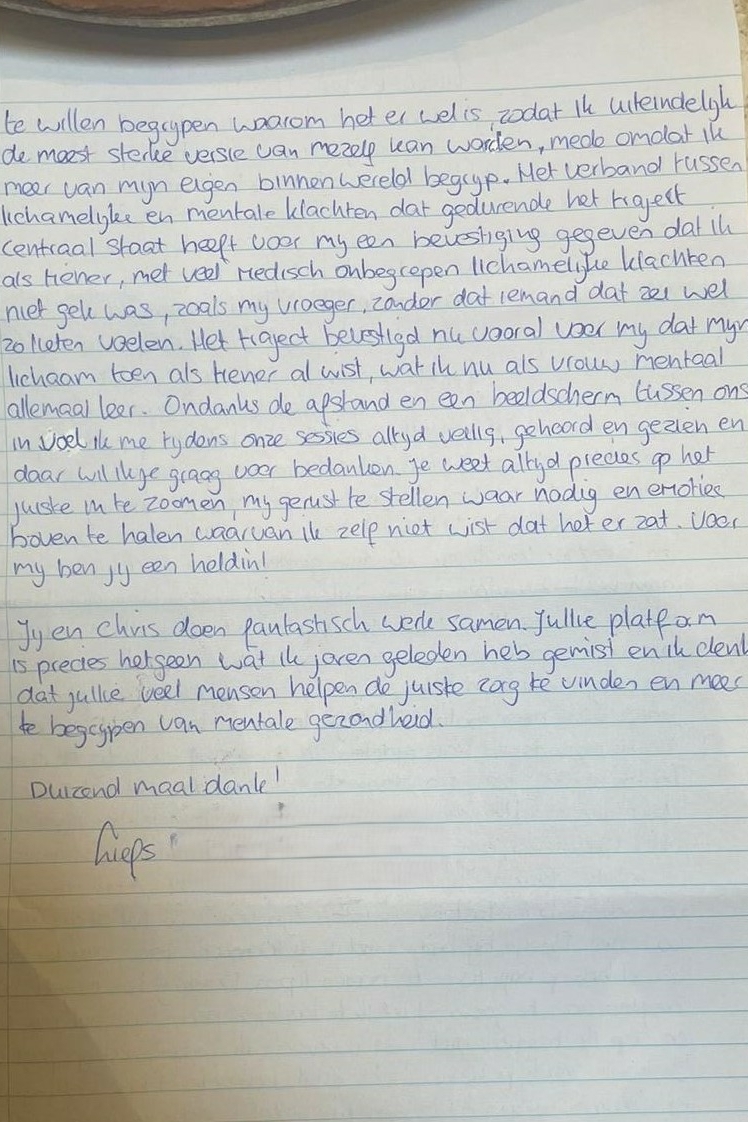 te willen begrypen waarom het er wel is, zodat ik uiteindelyk
de meest sterke versie van mezelf kan worden, mede omdat ik
meer van myn eigen binnenwereld begryp. Het verband tussen
lichamelyke en mentale klachten dat gedurende het traject
centraal staat heeft voor my een bevestiging gegeven dat ik
als tiener, met veel medisch onbegrepen lichamelyke klachten
niet gek was, zoals my vroeger, zonder dat iemand dat zei wel
zo lieten voelen. Het traject bevestigd nu vooral voor my dat myn
lichaam toen als tiener al wist, wat ik nu als vrouw mentaal
allemaal leer. Ondanks de afstand en een beeldscherm tussen ons
in voel ik me tydens onze sessies altyd veilig, gehoord en gezien en
daar wil ik je graag voor bedanken. Je weet altyd precies op het
juiste in te zoomen, my gerust te stellen waar nodig en emoties
boven te halen waarvan ik zelf niet wist dat het er zat. Voor
my ben jy een heldin!
Jy en Chris doen fantastisch werk samen. Jullie platform
is precies hetgeen wat ik jaren geleden heb gemist en ik denk
dat jullie veel mensen helpen de juiste zorg te vinden en meer
te begrypen van mentale gezondheid.
Duizend maal dank!